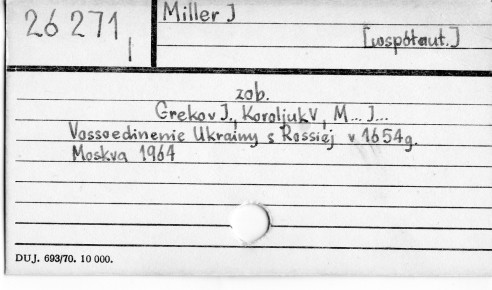 26 271,
I
Miller J
[współaut.]
zob.
Grekov J., Koroljuk V, M... J...
Vossoedinenie Ukrainy s Rossiej v 1654g.
Moskva 1964
DUJ. 693/70. 10 000.